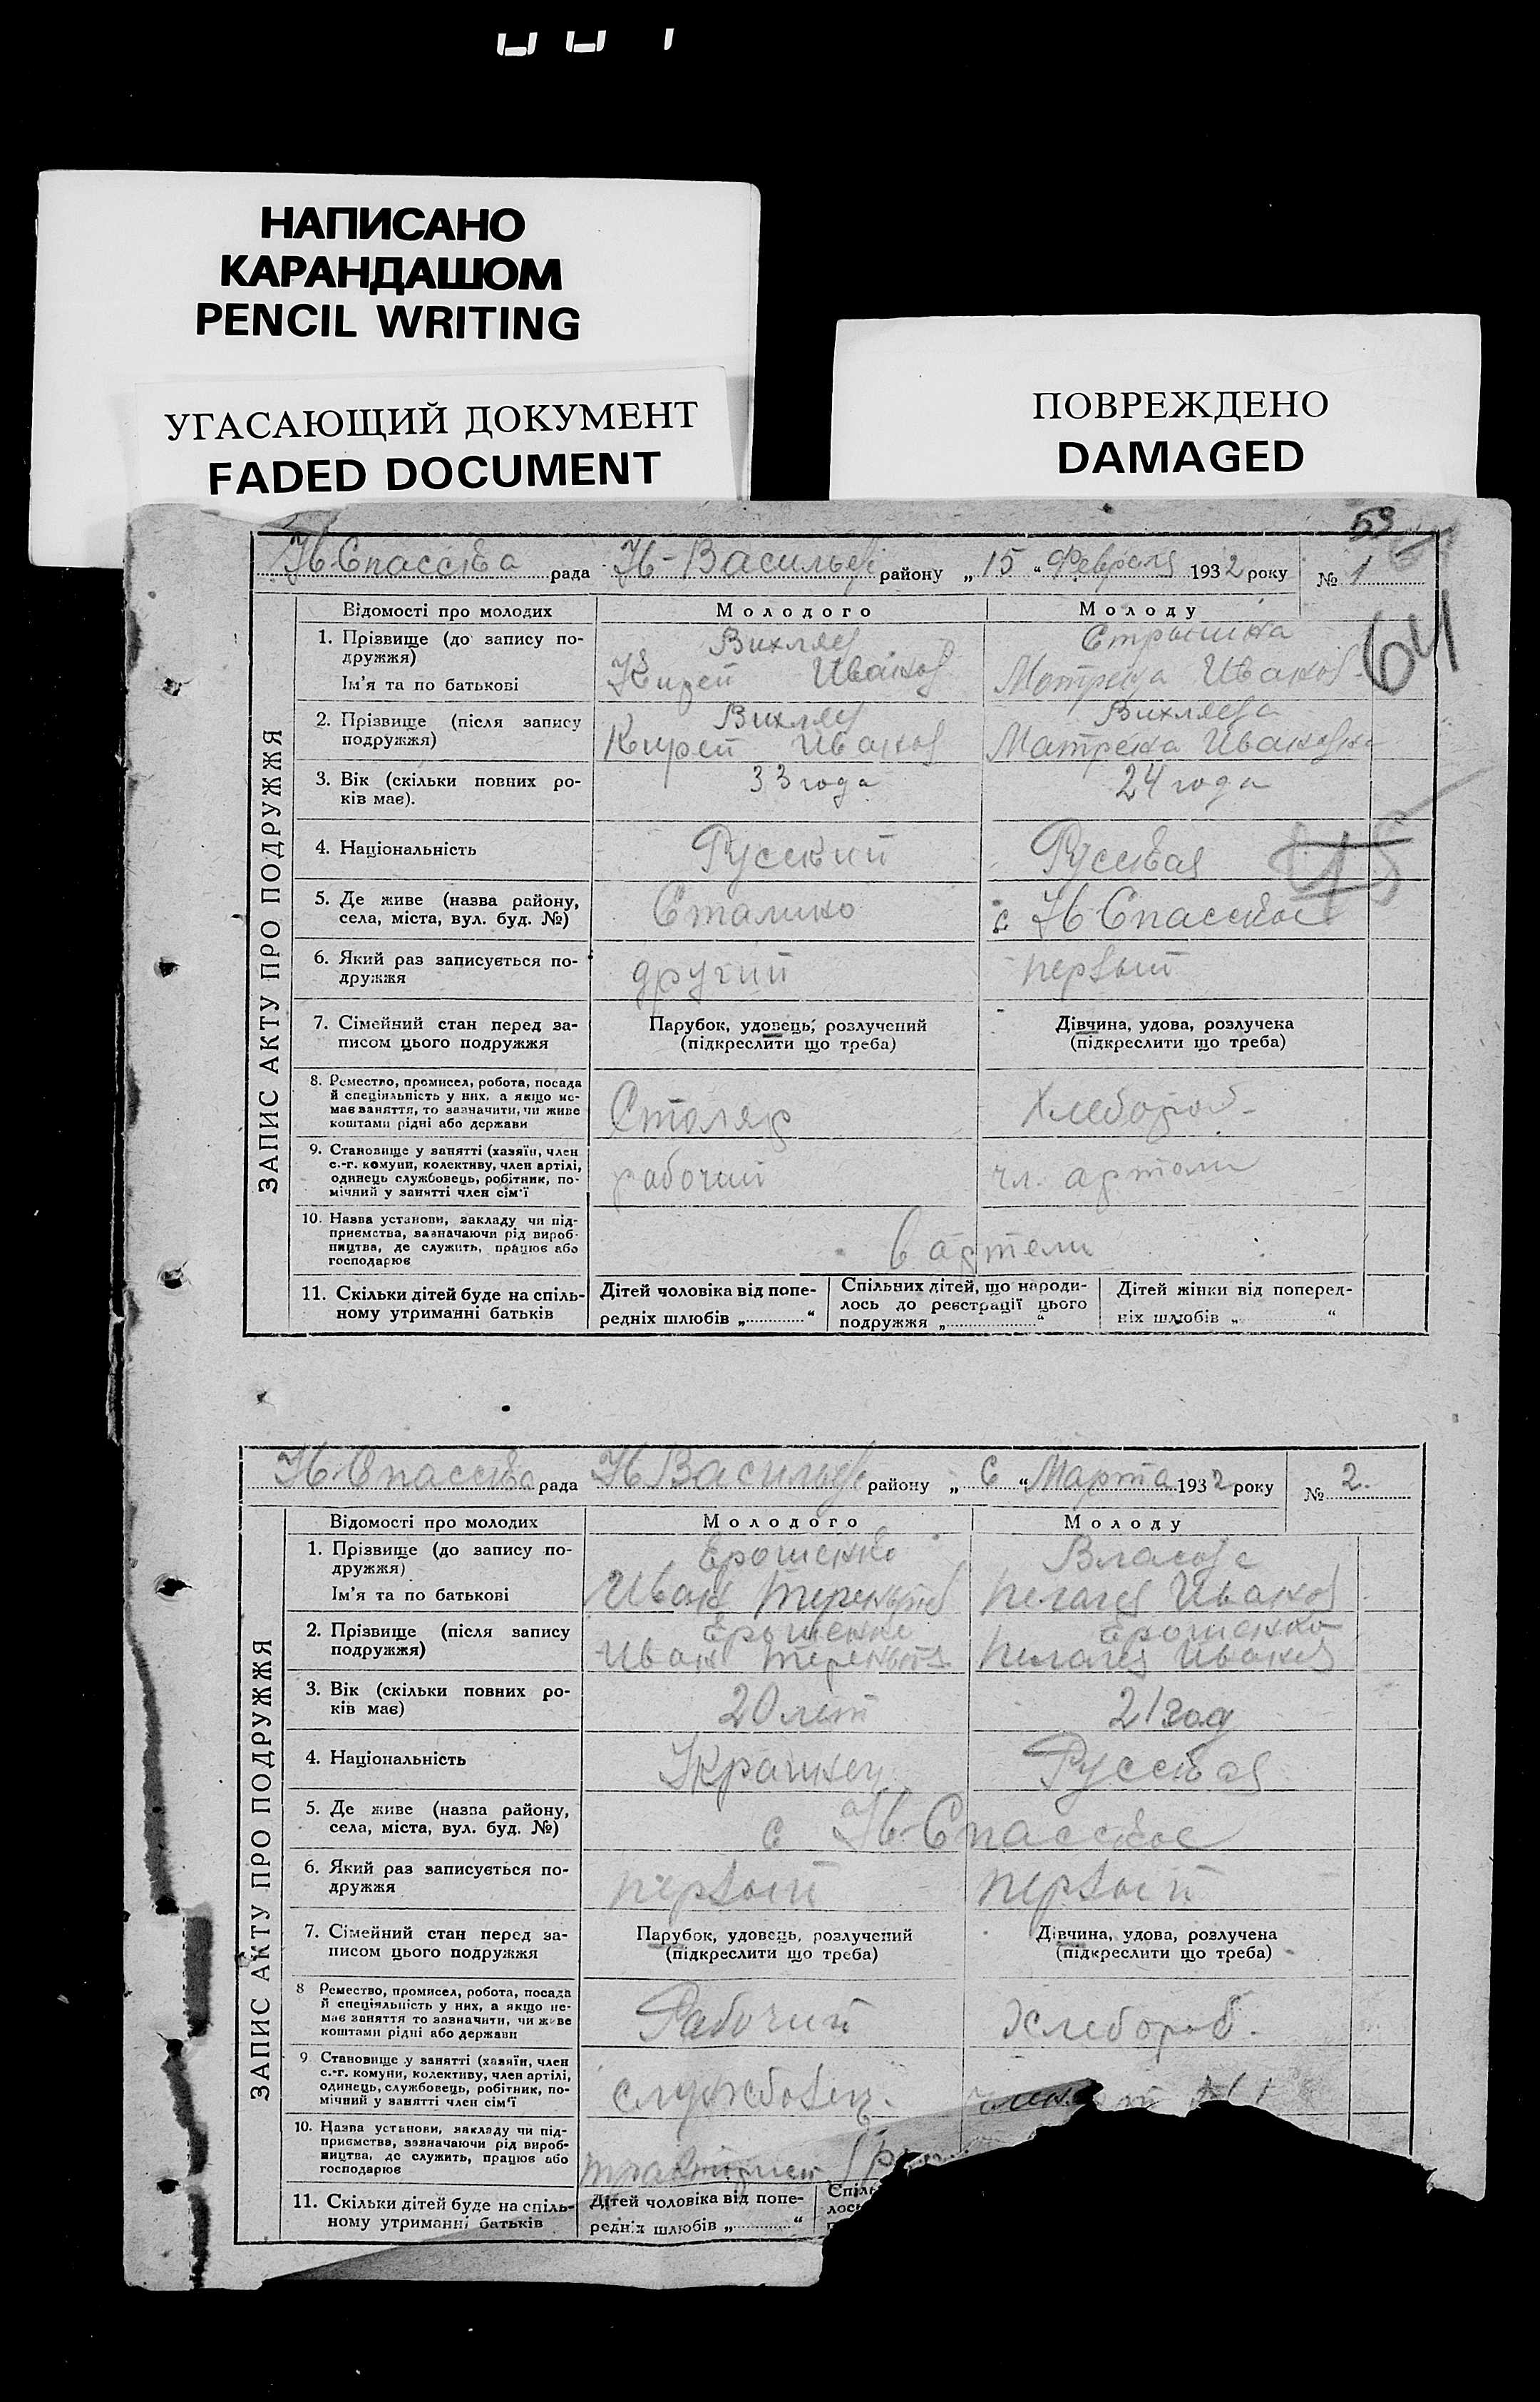 НАПИСАНО
КАРАНДАШОМ
PENCIL WRITING
УГАСАЮЩИЙ ДОКУМЕНТ
FADED DOCUMENT
ПОВРЕЖДЕНО
DAMAGED
59
Н-Спасска рада Н-Васильев району „15“ Февраля 1932 року № 1
64
ЗАПИС АКТУ ПРО ПОДРУЖЖЯ
Відомості про молодих
Молодого
Молоду
1. Прізвище (до запису по-
дружжя)
Ім'я та по батькові
Вихляев
Кирей Иванов
Матрена Иванов
2. Прізвище (після запису
подружжя)
Вихляев
Кирей Иванов
Вихляева
Матрена Ивановна
3. Вік (скільки повних ро-
ків має).
33 года
24 года
4. Національність
Русский
Русская
5. Де живе (назва району,
села, міста, вул. буд. №)
Сталино
с Н Спасское
6. Який раз записується по-
дружжя
другий
первый
7. Сімейний стан перед за-
писом цього подружжя
Парубок, удовець, розлучений
(підкреслити що треба)
Дівчина, удова, розлучена
(підкреслити що треба)
8. Ремество, промисел, робота, посада
й спеціяльність у них, а якщо не-
має заняття, то зазначити, чи живе
коштами рідні або держави
Столяр
Хлебороб
9. Становище у занятті (хазяїн, член
с.-г. комуни, колективу, член артілі,
одинець службовець, робітник, по-
мічний у занятті член сім'ї
рабочий
чл. артели
10. Назва установи, закладу чи під-
приємства, зазначаючи рід вироб-
ництва, де служить, працює або
господарює
в артели
11. Скільки дітей буде на спіль-
ному утриманні батьків
Дітей чоловіка від попе-
редніх шлюбів „ “
Спільних дітей, що народи-
лось до реєстрації цього
подружжя „ “
Дітей жінки від поперед-
ніх шлюбів „ “
Н-Спасска рада Н Васильев району „6“ Марта 1932 року № 2.
ЗАПИС АКТУ ПРО ПОДРУЖЖЯ
Відомості про молодих
Молодого
Молоду
1. Прізвище (до запису по-
дружжя)
Ім'я та по батькові
Ерошенко
Иван Терентьев
Власова
Пелагея Иванов
2. Прізвище (після запису
подружжя)
Ерошенко
Иван Терентьев
Ерошенко
Пелагея Иванов
3. Вік (скільки повних ро-
ків має)
20 лет
21 год
4. Національність
Украинец
Русская
5. Де живе (назва району,
села, міста, вул. буд. №)
с Н-Спасское
6. Який раз записується по-
дружжя
первый
первый
7. Сімейний стан перед за-
писом цього подружжя
Парубок, удовець, розлучений
(підкреслити що треба)
Дівчина, удова, розлучена
(підкреслити що треба)
8 Ремество, промисел, робота, посада
й спеціяльність у них, а якщо не-
має заняття то зазначити, чи живе
коштами рідні або держави
Рабочий
Хлебороб.
9. Становище у занятті (хазяїн, член
с.-г. комуни, колективу, член артілі,
одинець, службовець, робітник, по-
мічний у занятті член сім'ї
службовец.
10. Назва установи, закладу чи під-
приємства, зазначаючи рід вироб-
ництва, де служить, працює або
господарює
11. Скільки дітей буде на спіль-
ному утриманні батьків
Дітей чоловіка від попе-
редніх шлюбів „ “
Спіль
лось